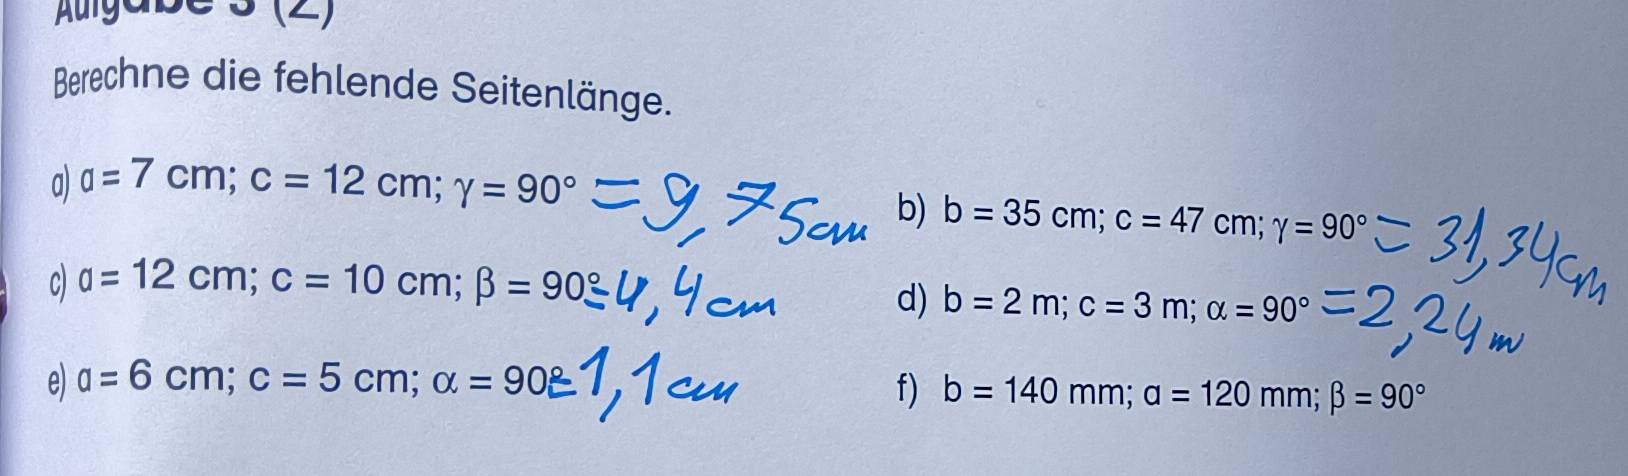 Aufgabe 3 (2)
Berechne die fehlende Seitenlänge.
a) a = 7 cm; c = 12 cm; γ = 90° = 9,75cm
b) b = 35 cm; c = 47 cm; γ = 90° = 31,34cm
c) a = 12 cm; c = 10 cm; β = 90° = 4,4cm
d) b = 2 m; c = 3 m; α = 90° = 2,24m
e) a = 6 cm; c = 5 cm; α = 90° = 1,1cm
f) b = 140 mm; a = 120 mm; β = 90°